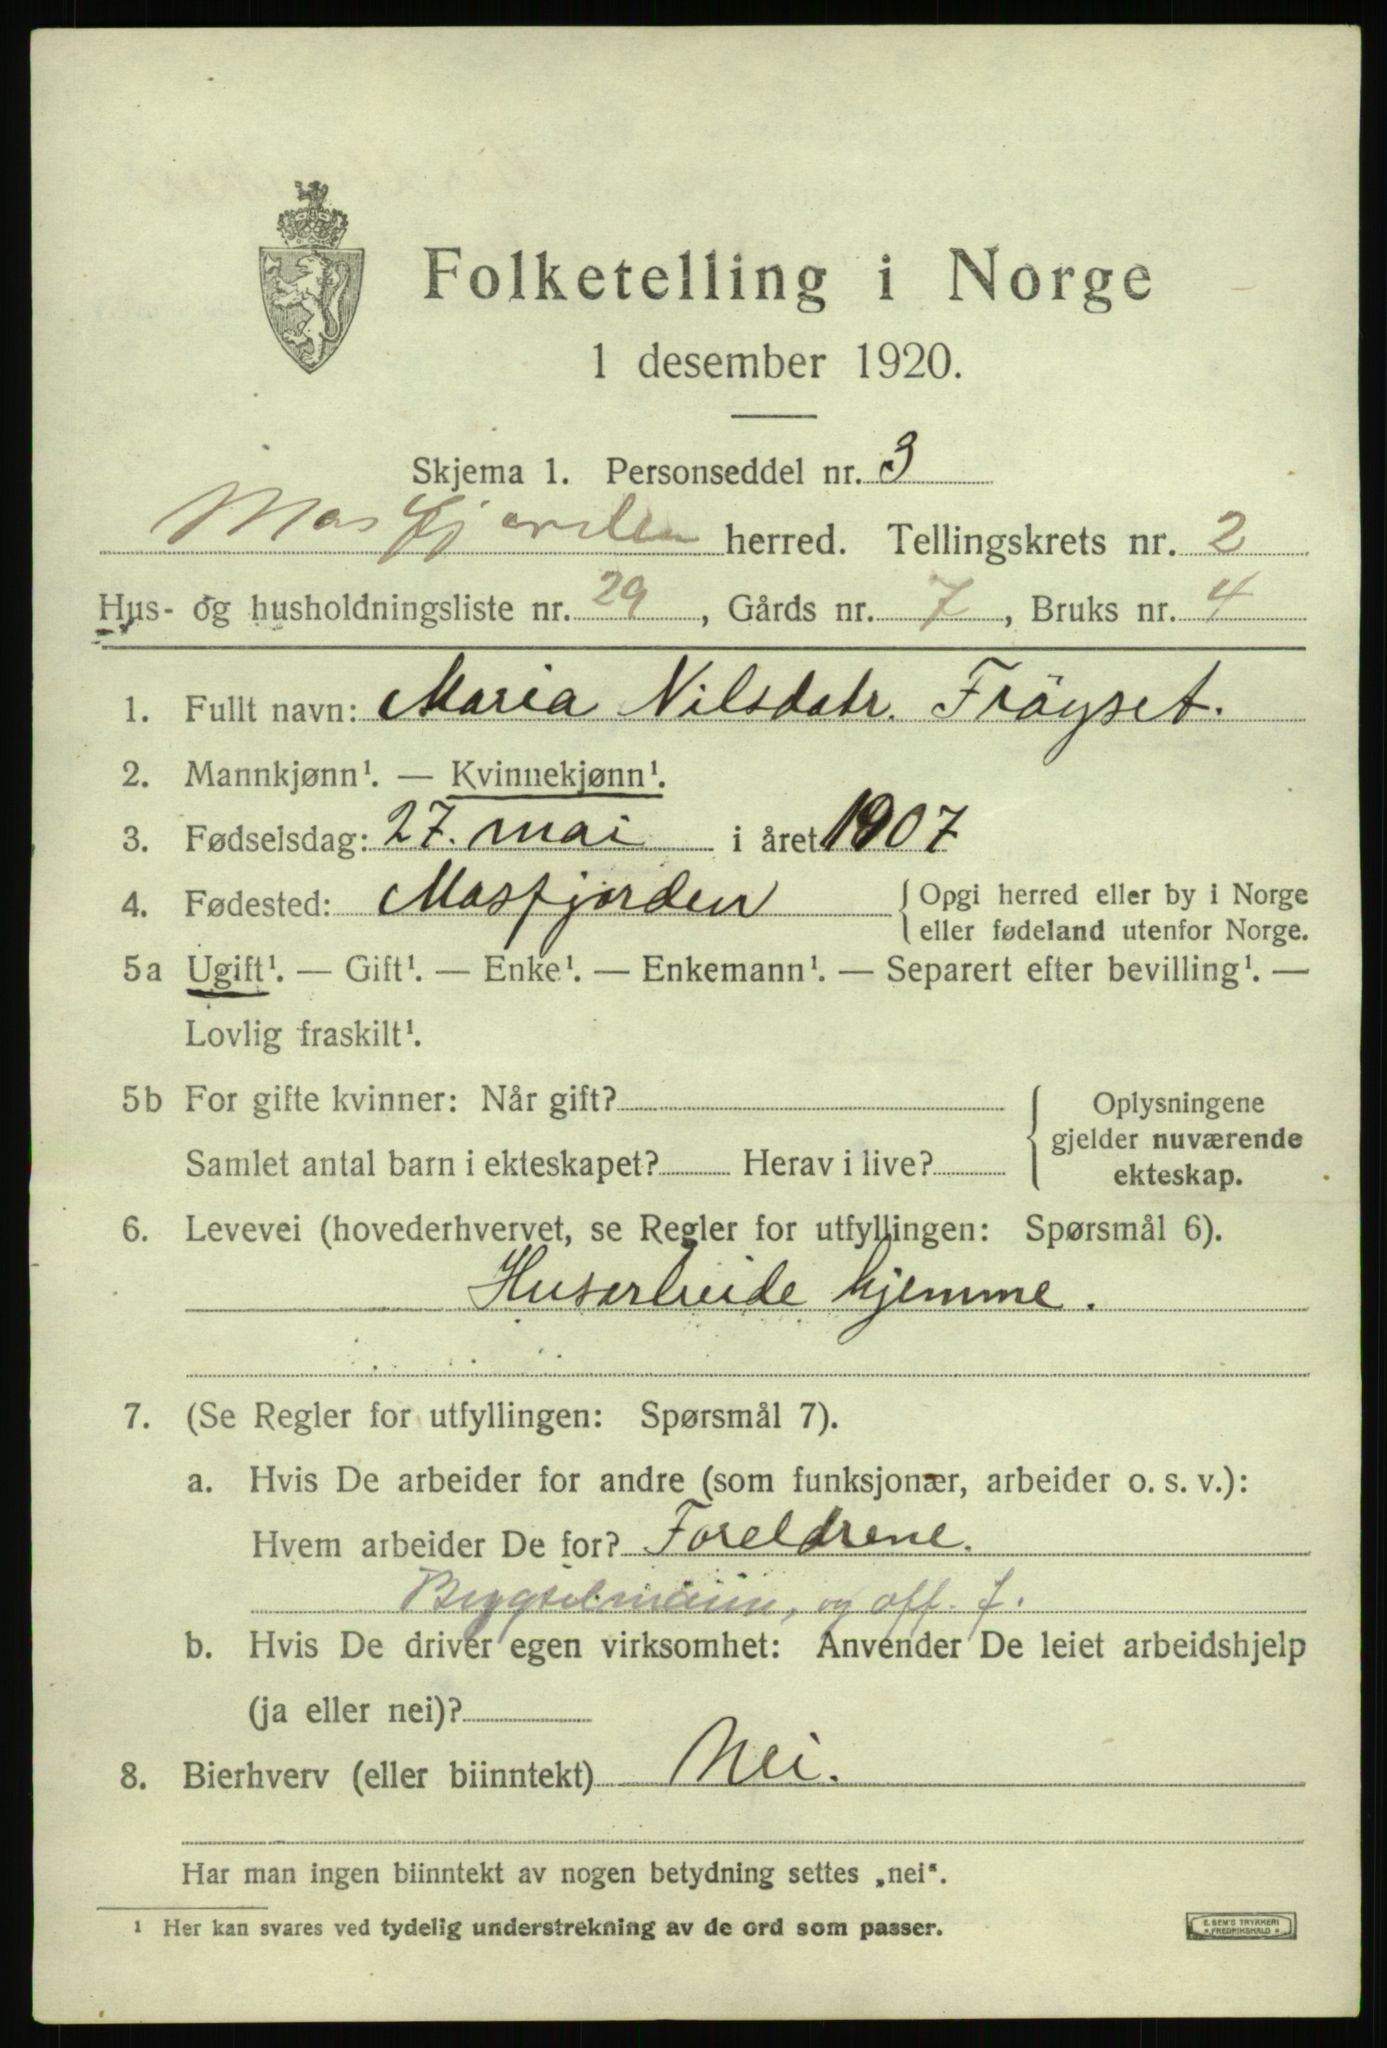 Folketelling i Norge
1 desember 1920.
Skjema 1. Personseddel nr. 3
Masfjorden herred. Tellingskrets nr. 2
Hus- og husholdningsliste nr. 29, Gårds nr. 7, Bruks nr. 4
1. Fullt navn: Maria Nilsdatr. Fröyset.
2. Mannkjønn¹. — Kvinnekjønn¹.
3. Fødselsdag: 27. mai i året 1907
4. Fødested: Masfjorden { Opgi herred eller by i Norge
eller fødeland utenfor Norge.
5a Ugift¹. — Gift¹. — Enke¹. — Enkemann¹. — Separert efter bevilling¹. —
Lovlig fraskilt¹.
5b For gifte kvinner: Når gift? { Oplysningene
gjelder nuværende
Samlet antal barn i ekteskapet? Herav i live?
ekteskap.
6. Levevei (hovederhvervet, se Regler for utfyllingen: Spørsmål 6).
Husarbeide hjemme.
7. (Se Regler for utfyllingen: Spørsmål 7).
a. Hvis De arbeider for andre (som funksjonær, arbeider o. s. v.):
Hvem arbeider De for? Foreldrene.
Bygselmann, og off. f.
b. Hvis De driver egen virksomhet: Anvender De leiet arbeidshjelp
(ja eller nei)?
8. Bierhverv (eller biinntekt) Nei.
Har man ingen biinntekt av nogen betydning settes „nei“.
¹ Her kan svares ved tydelig understrekning av de ord som passer.
E. SEM'S TRYKKERI
* FREDRIKSHALD *